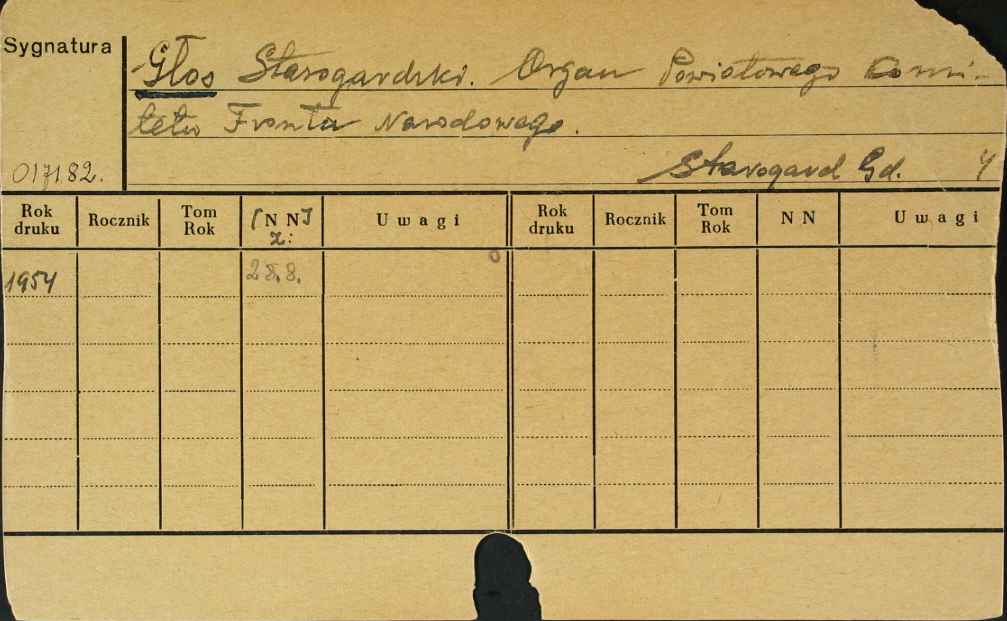 Sygnatura
Głos Starogardzki. Organ Powiatowego Komi-
tetu Frontu Narodowego.
017182. Starogard Gd. 4
Rok druku Rocznik Tom Rok [N N] z: Uwagi Rok druku Rocznik Tom Rok N N Uwagi
1954 28.8.